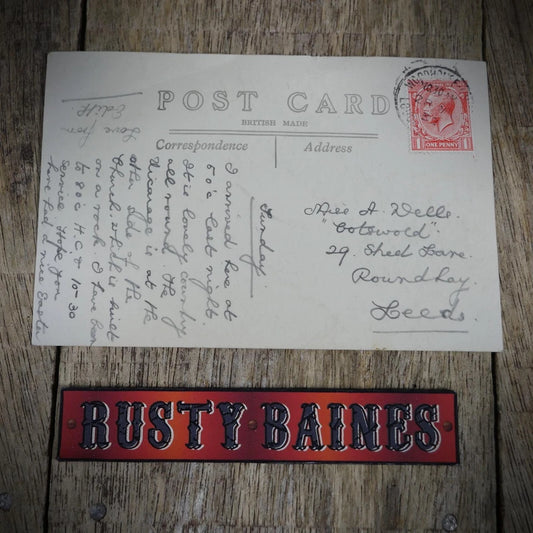 POST CARD
BRITISH MADE
Correspondence
Address
ONE PENNY
Sunday.
I arrived here at
5.0'c last night.
It is lovely country
all round the
Vicarage is at the
other side of the
Church which is built
on a rock. I have been
to 8 o'c H.C. & 10-30
Service Hope you
have had a nice Easter
Love from
Edith
Miss A. Wells.
"Cotswold"
29. Shed Lane.
Roundhay.
Leeds.
RUSTY BAINES